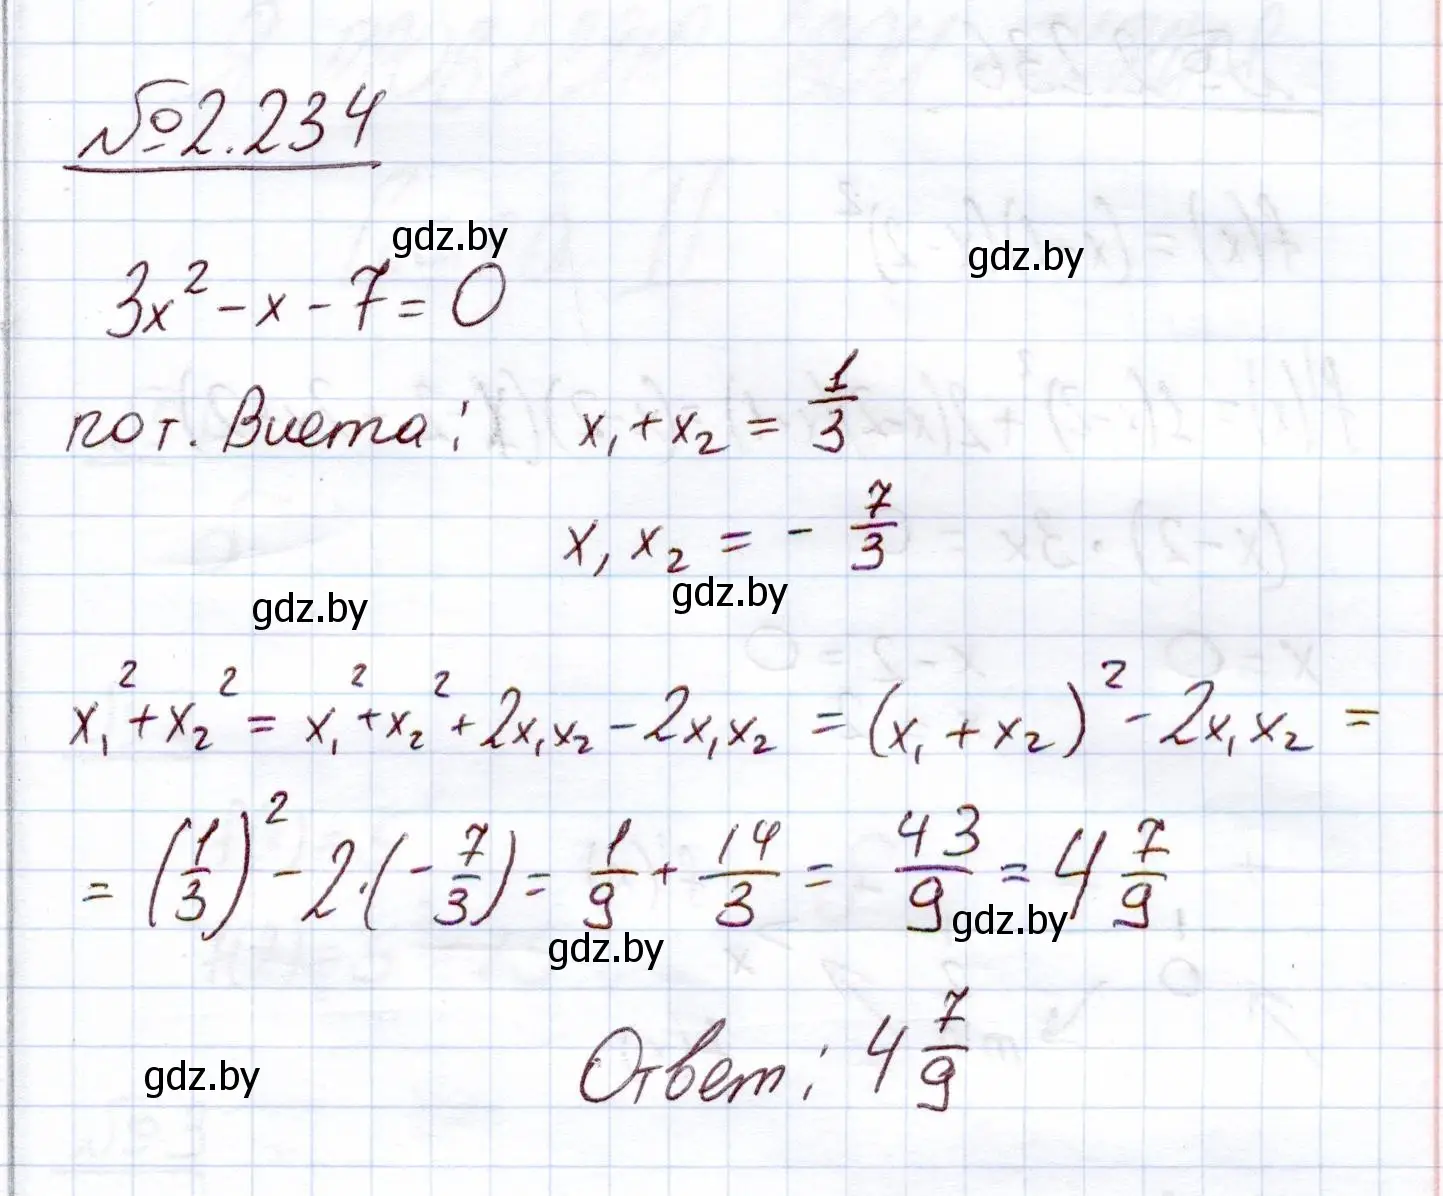 №2.234
gdz.by
gdz.by
3x² - x - 7 = 0
по т. Виета: x₁ + x₂ = 1/3
x₁ x₂ = - 7/3
gdz.by
gdz.by
x₁² + x₂² = x₁² + x₂² + 2x₁x₂ - 2x₁x₂ = (x₁ + x₂)² - 2x₁x₂ =
= (1/3)² - 2·(- 7/3) = 1/9 + 14/3 = 43/9 = 4 7/9
gdz.by
gdz.by
Ответ: 4 7/9
gdz.by